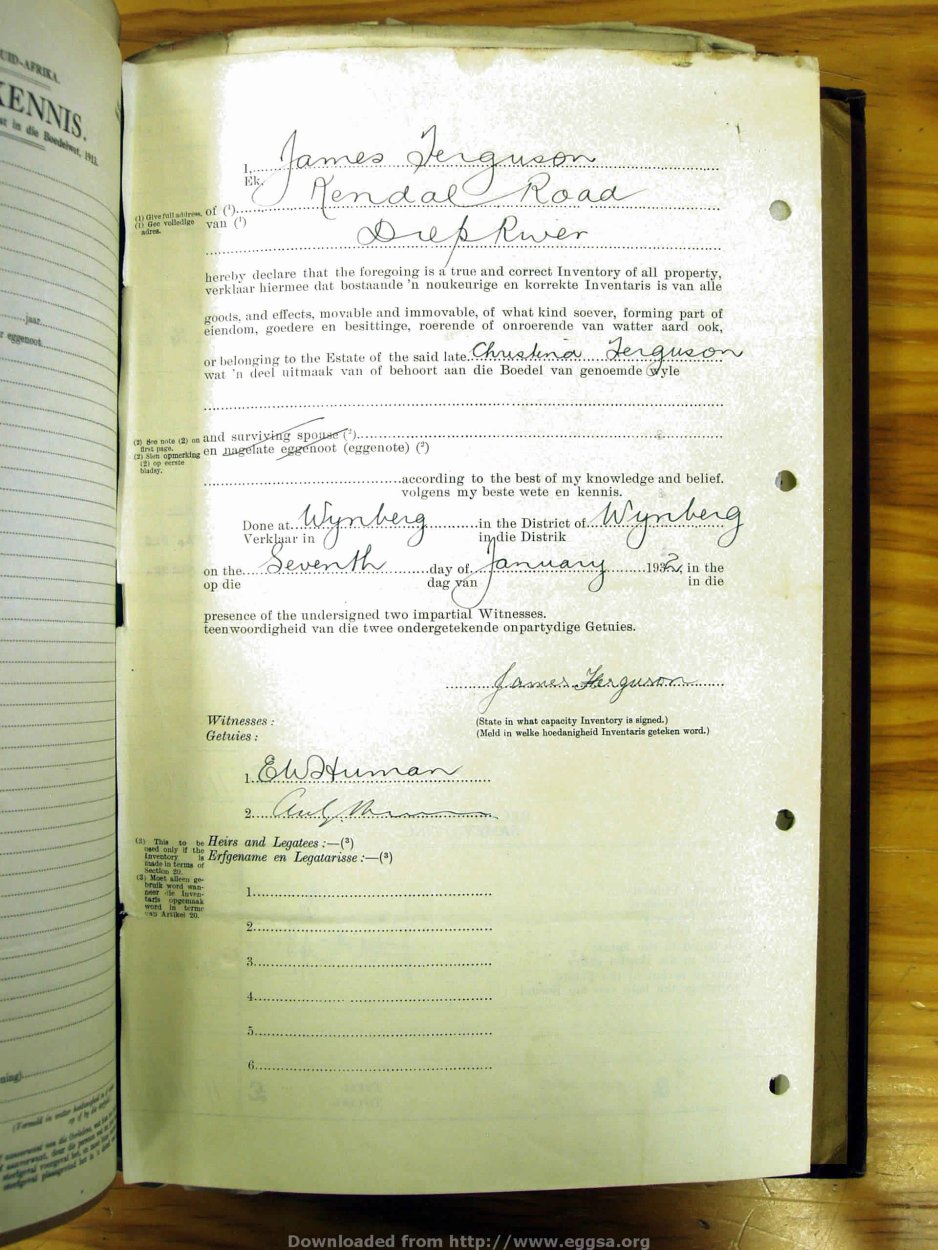 UID-AFRIKA.
KENNIS.
in die Boedelwet, 1913.
jaar
r eggenoot
ning)
I, James Ferguson
Ek,
(1) Give full address.
(1) Gee volledige adres.
of (1) Kendal Road
van (1)
Diep River
hereby declare that the foregoing is a true and correct Inventory of all property,
verklaar hiermee dat bostaande 'n noukeurige en korrekte Inventaris is van alle
goods, and effects, movable and immovable, of what kind soever, forming part of
eiendom, goedere en besittinge, roerende of onroerende van watter aard ook,
or belonging to the Estate of the said late Christina Ferguson
wat 'n deel uitmaak van of behoort aan die Boedel van genoemde wyle
(2) See note (2) on first page.
(2) Sien opmerking (2) op eerste bladsy.
and surviving spouse (2)
en nagelate eggenoot (eggenote) (2)
according to the best of my knowledge and belief.
volgens my beste wete en kennis.
Done at Wynberg in the District of Wynberg
Verklaar in in die Distrik
on the Seventh day of January 1932, in the
op die dag van in die
presence of the undersigned two impartial Witnesses.
teenwoordigheid van die twee ondergetekende onpartydige Getuies.
James Ferguson
Witnesses :
Getuies :
(State in what capacity Inventory is signed.)
(Meld in welke hoedanigheid Inventaris geteken word.)
1. E W Human
2.
(3) This to be used only if the Inventory is made in terms of Section 20.
(3) Moet alleen gebruik word wanneer die Inventaris opgemaak word in terme van Artikel 20.
Heirs and Legatees :—(3)
Erfgename en Legatarisse :—(3)
1.
2.
3.
4.
5.
6.
Downloaded from http://www.eggsa.org